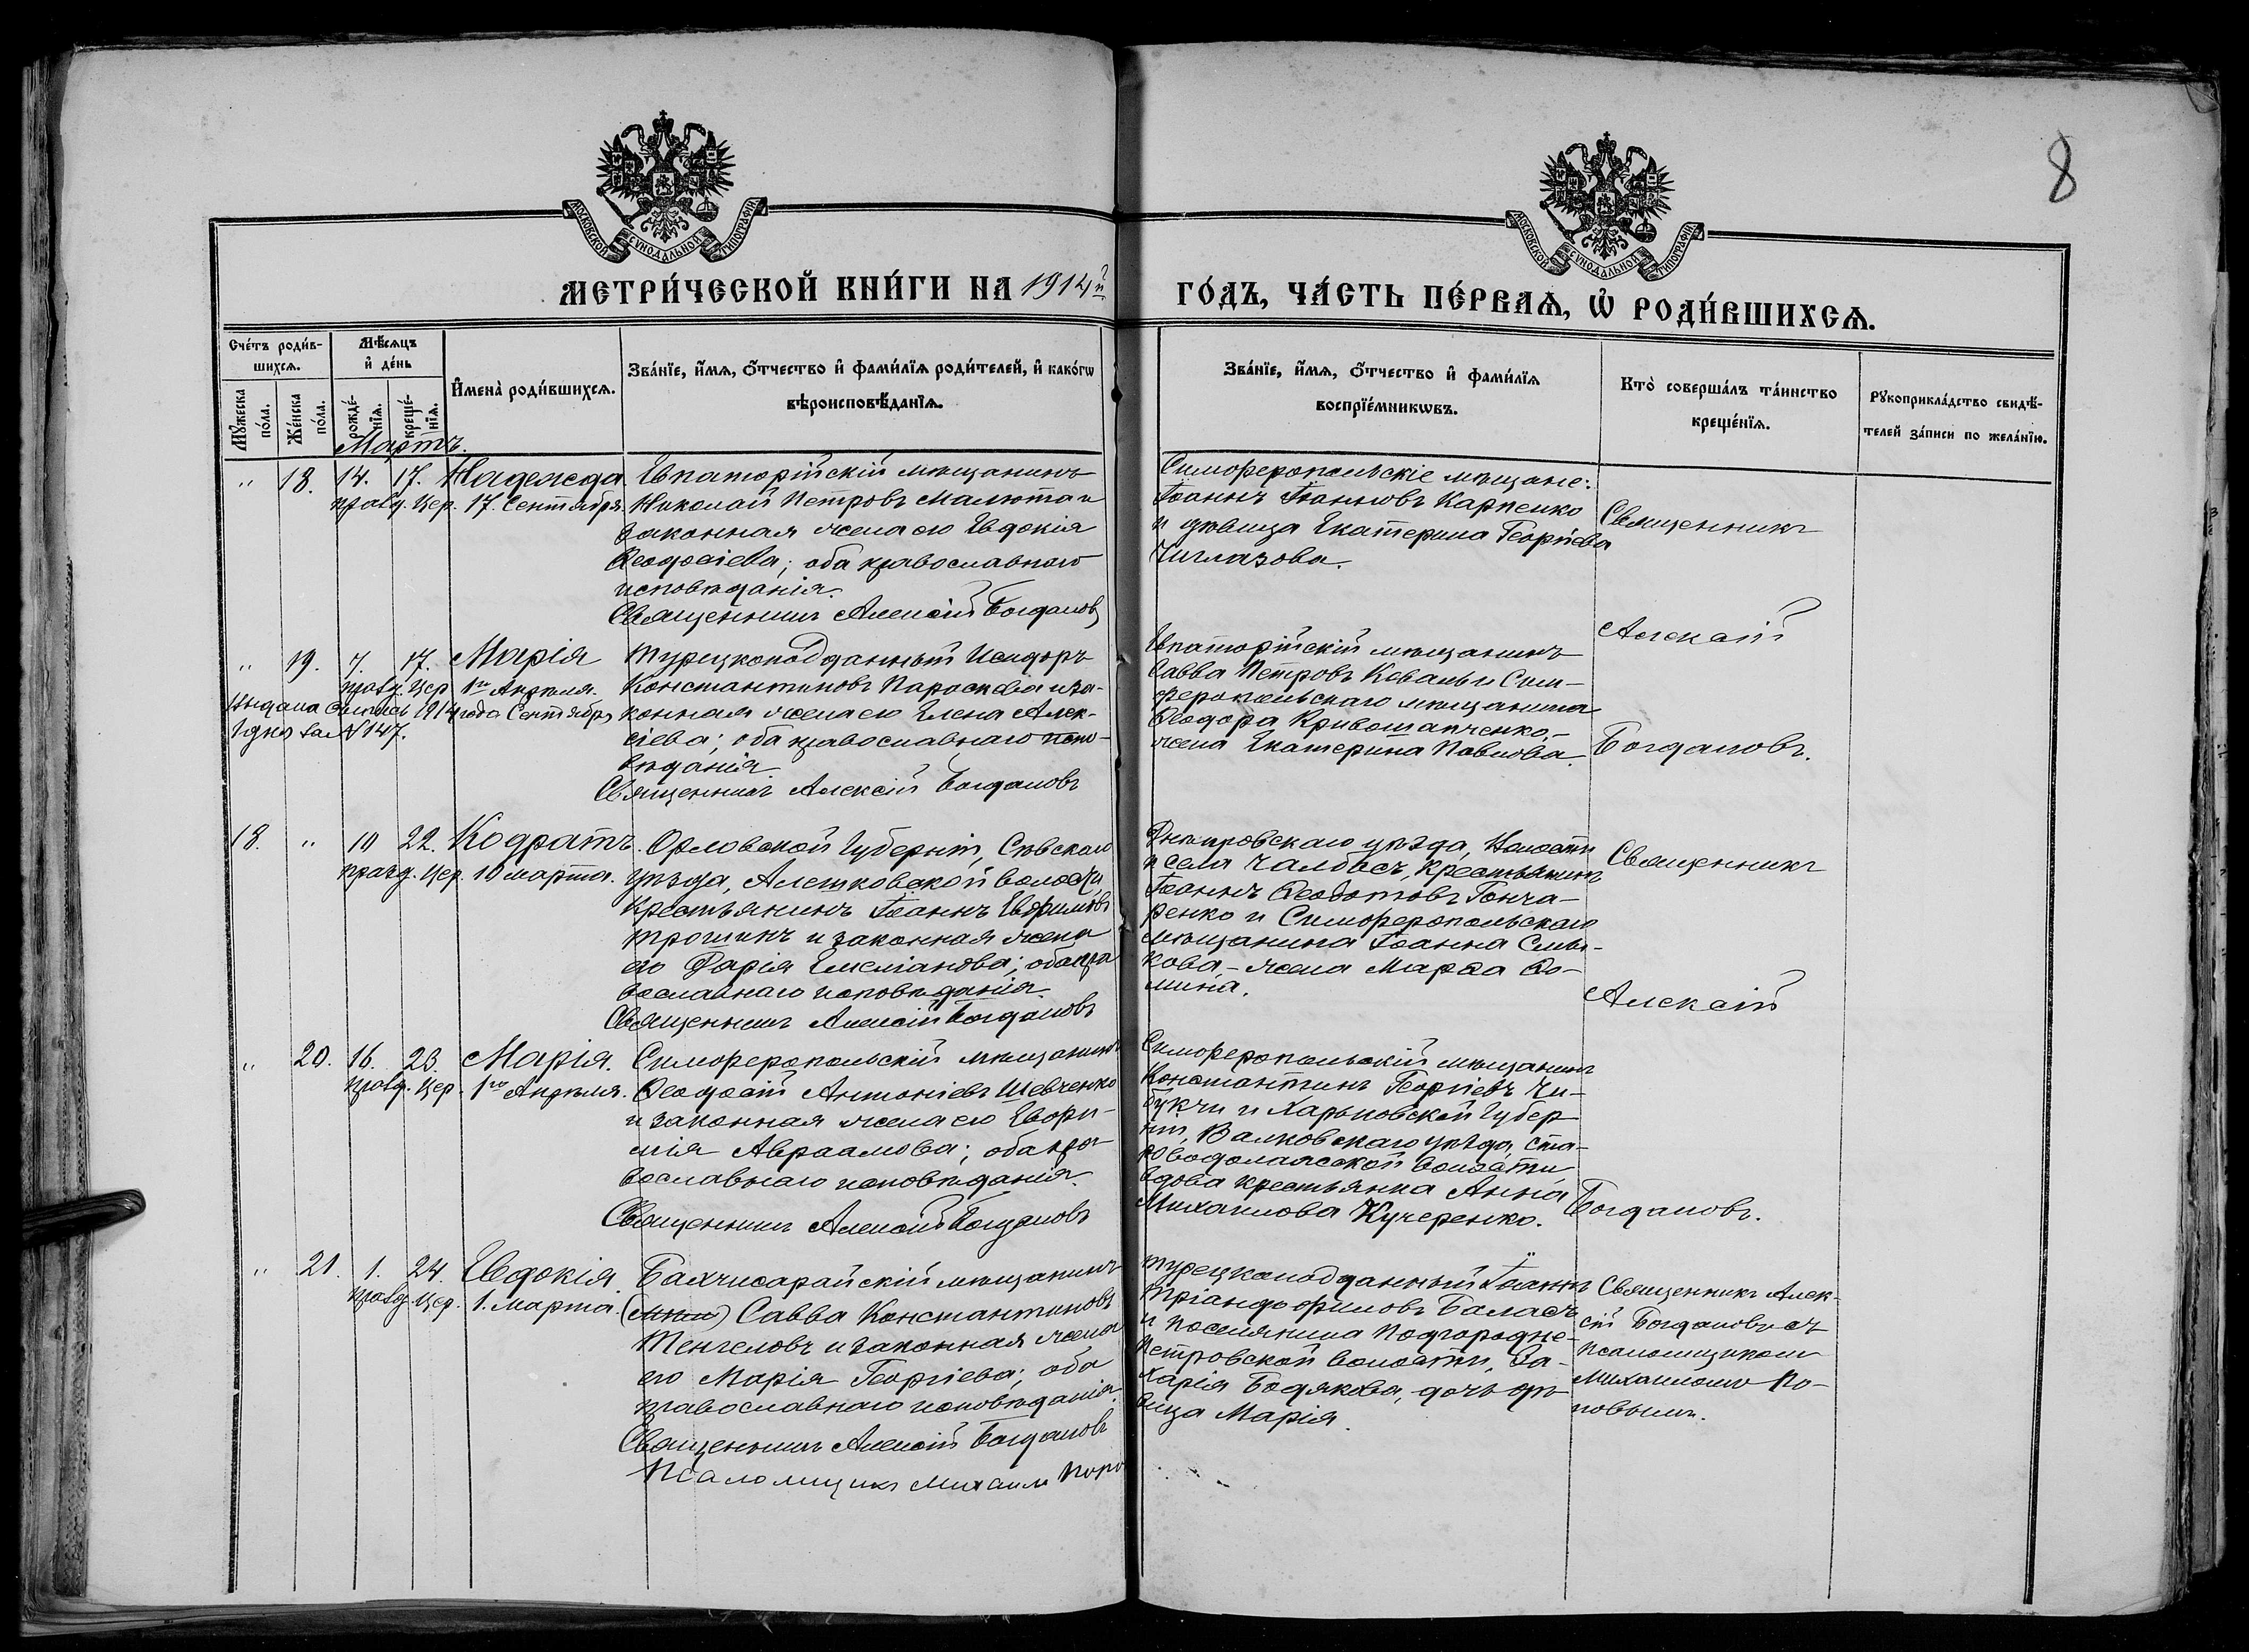 8
МОСКОВСКОЙ СѴНОДАЛЬНОЙ ТИПОГРАФІИ
МОСКОВСКОЙ СѴНОДАЛЬНОЙ ТИПОГРАФІИ
МЕТРИ́ЧЕСКОЙ КНИ́ГИ НА 1914й
ГО́ДЪ, ЧА́СТЬ ПЕ́РВАѦ, Ѽ РОДИ́ВШИХСѦ.
Сче́тъ роди́в-
шихсѧ.
Мѣ́сѧцъ
и҆ де́нь
Мꙋ́жеска
по́ла.
Же́нска
по́ла.
рожде́-
нїѧ.
креще́-
нїѧ.
И҆мена̀ роди́вшихсѧ.
Зва́нїе, и҆́мѧ, ѻ҆́тчество и҆ фами́лїѧ роди́телей, и҆ како́гѡ
вѣроисповѣ́данїѧ.
Зва́нїе, и҆́мѧ, ѻ҆́тчество и҆ фами́лїѧ
воспрїе́мникѡвъ.
Кто̀ соверша́лъ та́инство
креще́нїѧ.
Рꙋкоприкла́дство свидѣ́-
телей за́писи по жела́нїю.
Мартъ.
" 18. 14. 17. Надежда
празд. Цер. 17. Сентября.
Евпаторійскій мѣщанинъ
Николай Петровъ Малюта и
законная жена его Евдокія
Ѳеодосіева; оба православнаго
исповѣданія.
Священникъ Алексій Богдановъ
Симферопольскіе мѣщане:
Іоаннъ Іоанновъ Карпенко
и дѣвица Екатерина Георгіева
Чиглазова.
Священникъ
Алексій
Богдановъ.
" 19. 7. 17. Марія
празд. Цер. 1го Апрѣля.
Выдана выпись 1914 года Сентября
1 дня за № 147.
Турецкоподданный Исидоръ
Константиновъ Параскева и за-
конная жена его Елена Алек-
сіева; оба православнаго испо-
вѣданія
Священникъ Алексій Богдановъ
Евпаторійскій мѣщанинъ
Савва Петровъ Коваль и Сим-
феропольскаго мѣщанина
Ѳеодора Кривошапченко,-
жена Екатерина Павлова.
18. " 10 22. Кодратъ.
празд. Цер. 10 марта.
Орловской Губерніи, Сѣвскаго
уѣзда, Алешковской волости,
Крестьянинъ Іоаннъ Евфимовъ
Трошинъ и законная жена
его Дарія Емеліанова; оба пра
вославнаго исповѣданія.
Священникъ Алексій Богдановъ
Днѣпровскаго уѣзда, Волости
и села Чалбасъ, крестьянинъ
Іоаннъ Ѳеодотовъ Гонча-
ренко и Симферопольскаго
мѣщанина Іоанна
кова,- жена Марѳа Ѳо-
мина.
Священникъ
Алексій
Богдановъ.
" 20. 16. 23. Марія.
празд. Цер. 1го Апрѣля.
Симферопольскій мѣщанинъ
Ѳеодосій Антоніевъ Шевченко
и законная жена его Евфи-
мія Авраамова; оба пра-
вославнаго исповѣданія.
Священникъ Алексій Богдановъ
Симферопольскій мѣщанинъ
Константинъ Георгіевъ Чи-
букчи и Харьковской Губер-
ніи, Валковскаго уѣзда, Ста-
роводолажской волости,
вдова крестьянка Анна
Михаилова Кучеренко.
" 21. 1. 24. Евдокія.
празд. Цер. 1. марта.
Бахчисарайскій мѣщанинъ
Савва Константиновъ
Тенгеловъ и законная жена
его Марія Георгіева; оба
православнаго исповѣданія.
Священникъ Алексій Богдановъ
Псаломщикъ Михаилъ Попо
Турецкоподданный Іоаннъ
Тріандофиловъ Баласъ
и поселянина Подгородне-
Петровской волости, За-
харія Бодякова, дочь дѣ-
вица Марія.
Священникъ Алек-
сій Богдановъ съ
псаломщикомъ
Михаиломъ По-
повымъ.